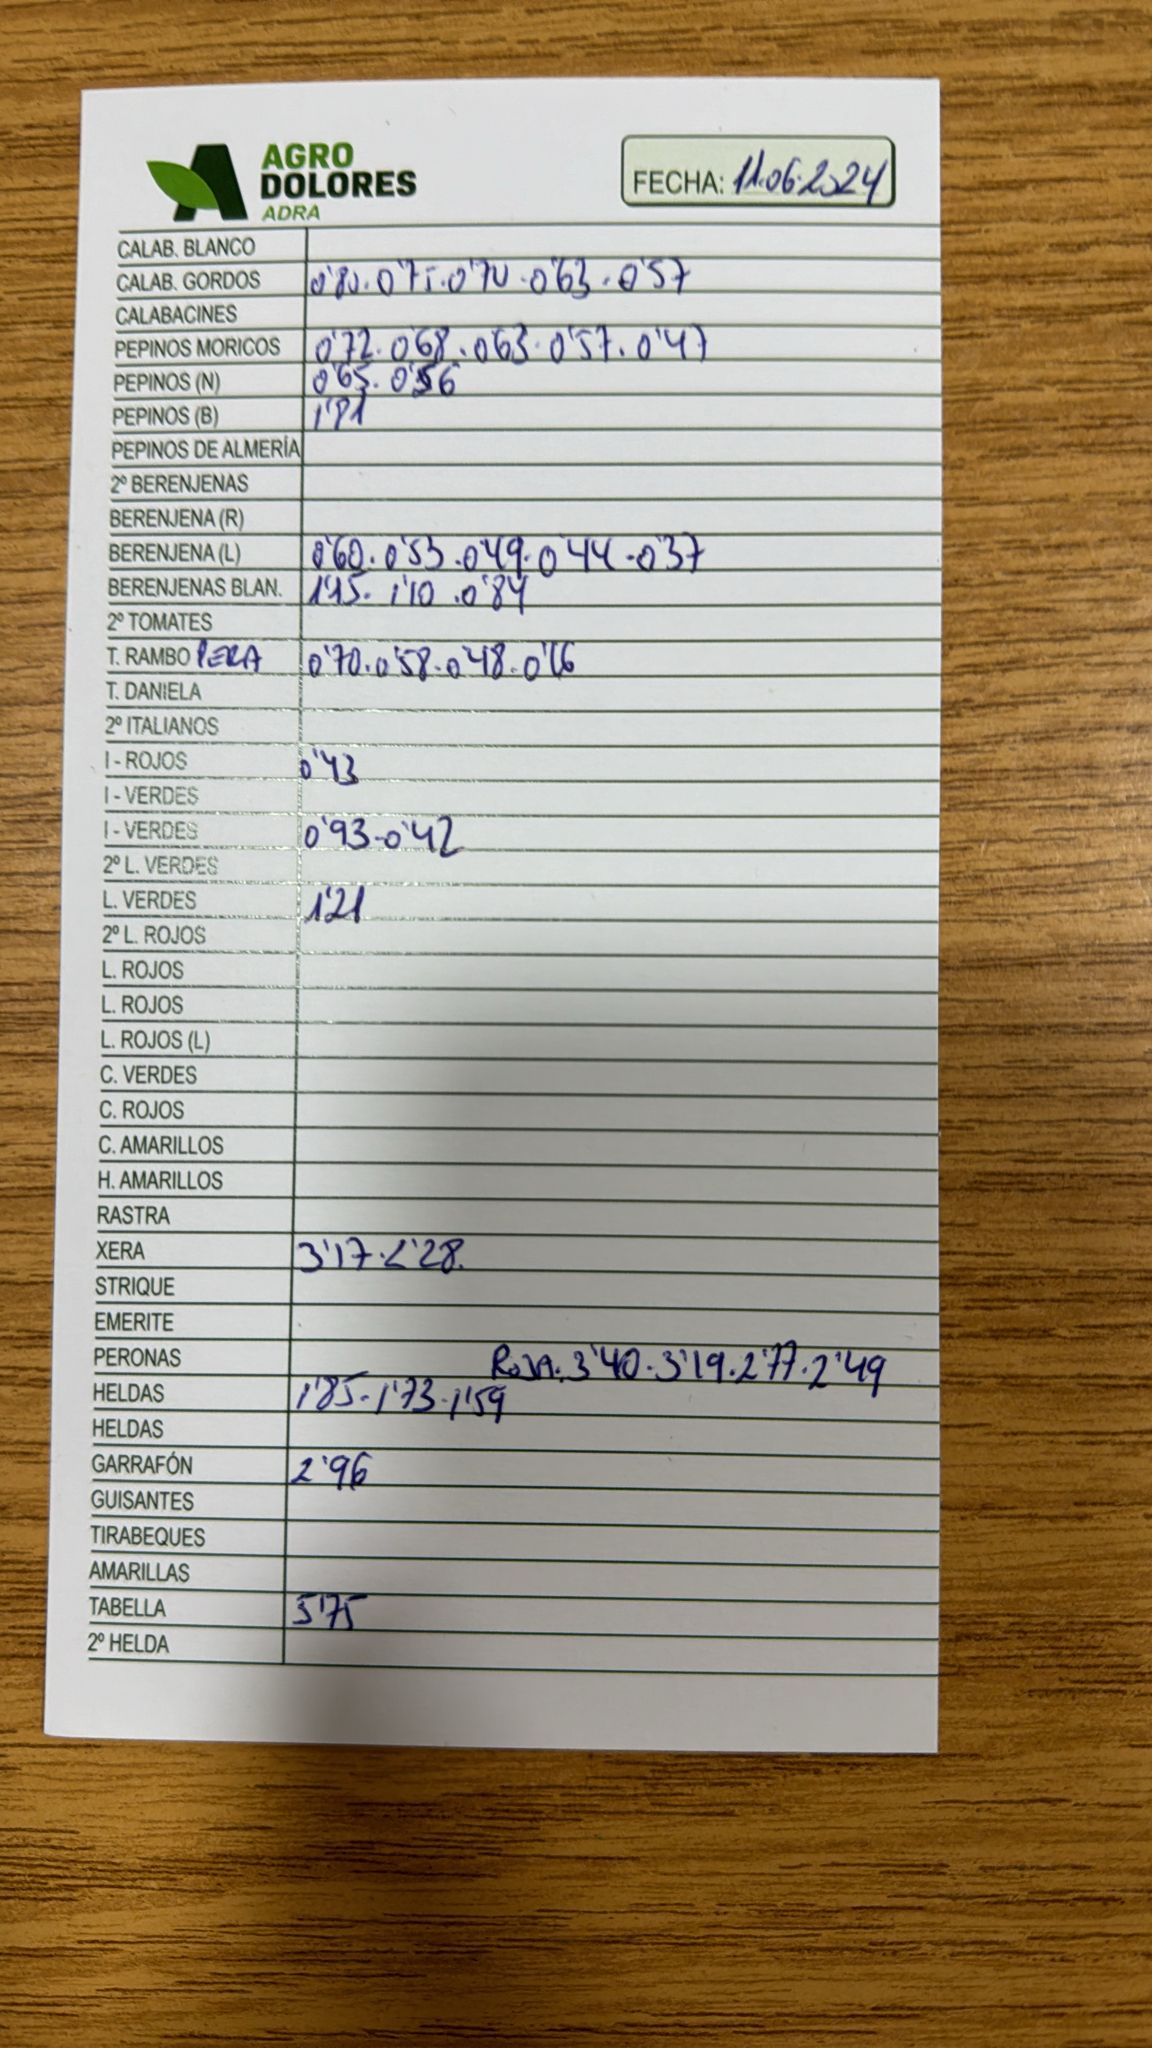 AGRO
DOLORES
ADRA
FECHA: 11.06.2024
CALAB. BLANCO
CALAB. GORDOS 0'80. 0'75. 0'70. 0'63. 0'57
CALABACINES
PEPINOS MORICOS 0'72. 0'68. 063. 0'57. 0'47
PEPINOS (N) 0'65. 0'56
PEPINOS (B) 1'81
PEPINOS DE ALMERÍA
2º BERENJENAS
BERENJENA (R)
BERENJENA (L) 0'60. 0'53. 0'49. 0'44. 0'37
BERENJENAS BLAN. 1'15. 1'10. 0'84
2º TOMATES
T. RAMBO PERA 0'70. 0'58. 0'48.
T. DANIELA
2º ITALIANOS
I - ROJOS 0'43
I - VERDES
I - VERDES 0'93-0'42
2º L. VERDES
L. VERDES 1'21
2º L. ROJOS
L. ROJOS
L. ROJOS
L. ROJOS (L)
C. VERDES
C. ROJOS
C. AMARILLOS
H. AMARILLOS
RASTRA
XERA 3'17. 2'28.
STRIQUE
EMERITE
PERONAS ROJA. 3'40. 3'19. 2'77. 2'49
HELDAS 1'85. 1'73. 1'59
HELDAS
GARRAFÓN 2'96
GUISANTES
TIRABEQUES
AMARILLAS
TABELLA
2º HELDA